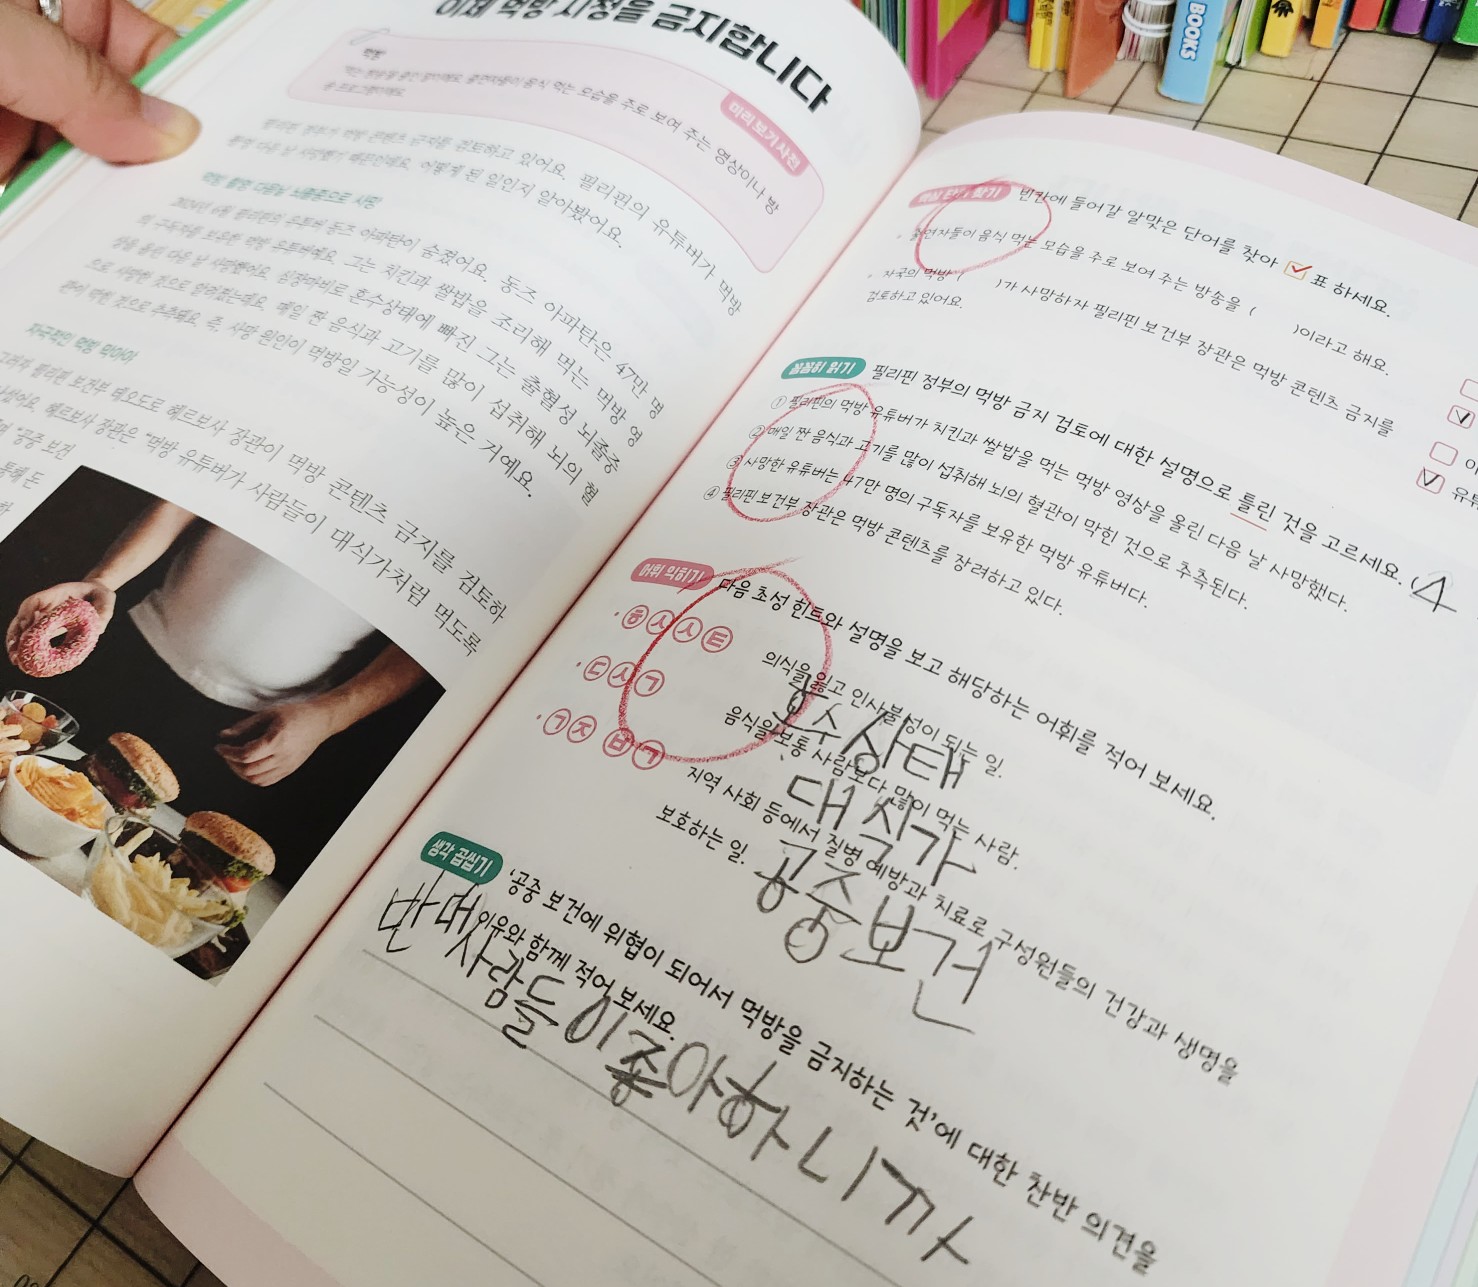 이제 먹방 시청을 금지합니다
미리 보기 사전
먹방
'먹는 방송'을 줄인 말이에요. 출연자들이 음식 먹는 모습을 주로 보여 주는 영상이나 방
송 프로그램이에요.
필리핀 정부가 먹방 콘텐츠 금지를 검토하고 있어요. 필리핀의 유튜버가 먹방
촬영 다음 날 사망했기 때문인데요. 어떻게 된 일인지 알아봤어요.
먹방 촬영 다음날 뇌졸중으로 사망
2024년 6월 필리핀의 유튜버 동즈 아파탄이 숨졌어요. 동즈 아파탄은 47만 명
의 구독자를 보유한 먹방 유튜버예요. 그는 치킨과 쌀밥을 조리해 먹는 먹방 영
상을 올린 다음 날 사망했어요. 심장마비로 혼수상태에 빠진 그는 출혈성 뇌졸중
으로 사망한 것으로 알려졌는데요. 매일 짠 음식과 고기를 많이 섭취해 뇌의 혈
관이 막힌 것으로 추측돼요. 즉, 사망 원인이 먹방일 가능성이 높은 거예요.
자극적인 먹방 막아야
그러자 필리핀 보건부 테오도로 헤르보사 장관이 먹방 콘텐츠 금지를 검토하
나섰어요. 헤르보사 장관은 "먹방 유튜버가 사람들이 대식가처럼 먹도록
"공중 보건
통해 도
BOOKS
핵심 단어 찾기 빈칸에 들어갈 알맞은 단어를 찾아 ☑ 표 하세요.
출연자들이 음식 먹는 모습을 주로 보여 주는 방송을 ( )이라고 해요.
자국의 먹방 ( )가 사망하자 필리핀 보건부 장관은 먹방 콘텐츠 금지를
검토하고 있어요.
유튜
꼼꼼히 읽기 필리핀 정부의 먹방 금지 검토에 대한 설명으로 틀린 것을 고르세요. (4
① 필리핀의 먹방 유튜버가 치킨과 쌀밥을 먹는 먹방 영상을 올린 다음 날 사망했다.
② 매일 짠 음식과 고기를 많이 섭취해 뇌의 혈관이 막힌 것으로 추측된다.
③ 사망한 유튜버는 47만 명의 구독자를 보유한 먹방 유튜버다.
④ 필리핀 보건부 장관은 먹방 콘텐츠를 장려하고 있다.
어휘 익히기 다음 초성 힌트와 설명을 보고 해당하는 어휘를 적어 보세요.
ㅎㅅㅅㅌ 의식을 잃고 인사불성이 되는 일.
혼수상태
ㄷㅅㄱ 음식을 보통 사람보다 많이 먹는 사람.
대식가
ㄱㅈ ㅂㄱ 지역 사회 등에서 질병 예방과 치료로 구성원들의 건강과 생명을
보호하는 일.
공중보건
생각 곱씹기 '공중 보건에 위협이 되어서 먹방을 금지하는 것'에 대한 찬반 의견을
이유와 함께 적어 보세요.
반매사람들이좋아하니까